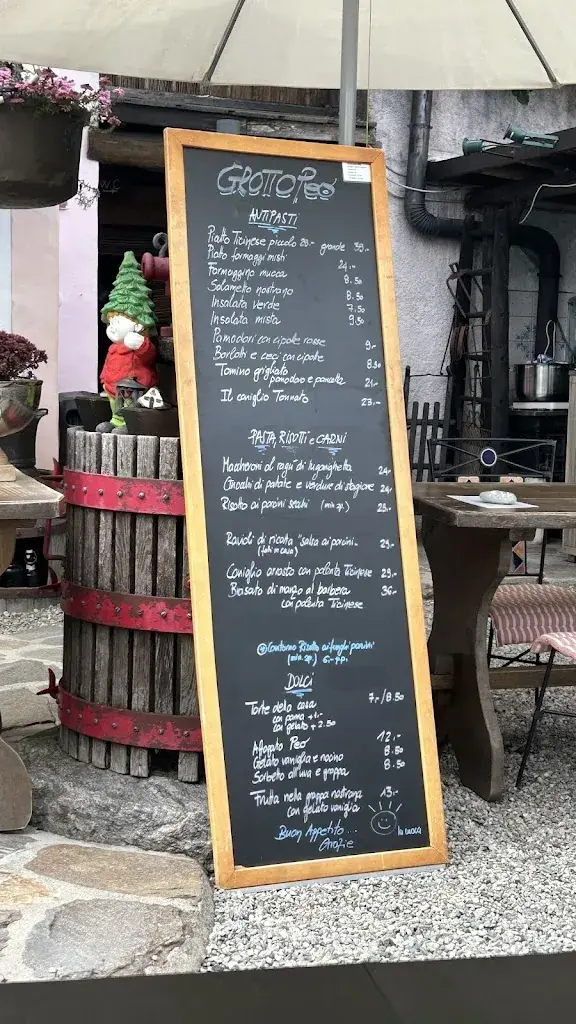 GROTTO Peo
ANTIPASTI
Piatto Ticinese piccolo 20.- grande 35.-
Piatto formaggi misti 24.-
Formaggino mucca 8.50
Salametto nostrano 8.50
Insalata verde 7.50
Insalata mista 9.50
Pomodori con cipolle rosse 9.-
Borlotti e ceci con cipolle 8.50
Tomino grigliato
pomodoro e pancetta 21.-
Il coniglio Tonnato 23.-
PASTA, RISOTTI e CARNI
Maccheroni al ragù di luganighetta 24.-
Gnocchi di patate e verdure di stagione 24.-
Risotto ai porcini secchi (min 2p.) 25.-
Ravioli di ricotta "salsa ai porcini.. 29.-
(fatti in casa)
Coniglio arrosto con polenta Ticinese 29.-
Brasato di manzo al barbera 36.-
con polenta Ticinese
Contorno Risotto ai funghi porcini
(min. 2p.) 6.- p.p.
DOLCI
Torte della casa 7.-/8.50
con panna +1.-
con gelato +2.50
Affogato Peo 12.-
Gelato vaniglia e nocino 8.50
Sorbetto all'uva e grappa 8.50
Frutta nella grappa nostrana 13.-
con gelato vaniglia
Buon Appetito...
Grazie